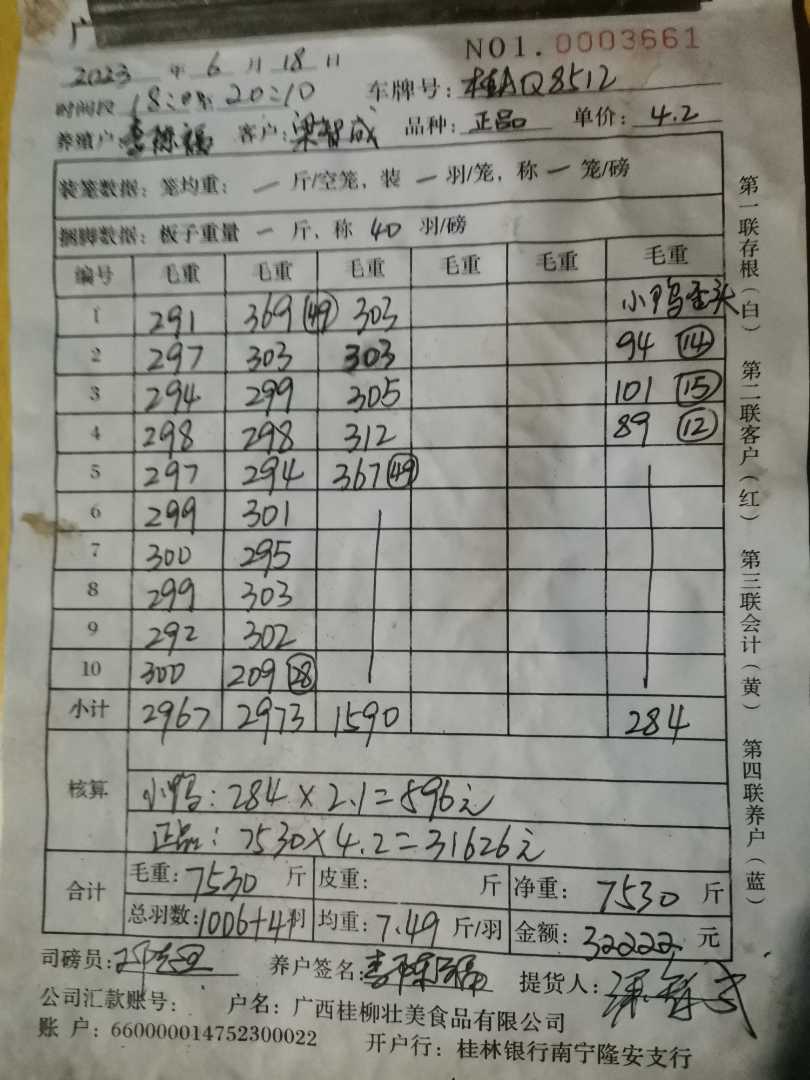 广
NO1.0003661
2023年6月18日
时间段 18:00 20:10 车牌号:桂AQ8512
养殖户: 客户:梁智成 品种:正品 单价:4.2
装笼数据:笼均重:一斤/空笼,装一羽/笼,称一笼/磅
捆脚数据:板子重量一斤,称40羽/磅
编号 毛重 毛重 毛重 毛重 毛重 毛重
1 291 369(49) 303 小鸭歪头
2 297 303 303 94(14)
3 294 299 305 101(15)
4 298 298 312 89(12)
5 297 294 367(49)
6 299 301
7 300 295
8 299 303
9 292 302
10 300 209(28)
小计 2967 2973 1590 284
核算
小鸭:284×2.1=596元
正品:7530×4.2=31626元
合计
毛重:7530斤 皮重: 斤 净重:7530斤
总羽数:1006+41羽 均重:7.49斤/羽 金额:32222元
司磅员: 养户签名: 提货人:梁智成
公司汇款账号: 户名:广西桂柳壮美食品有限公司
账户:660000014752300022 开户行:桂林银行南宁隆安支行
第一联存根(白) 第二联客户(红) 第三联会计(黄) 第四联养户(蓝)